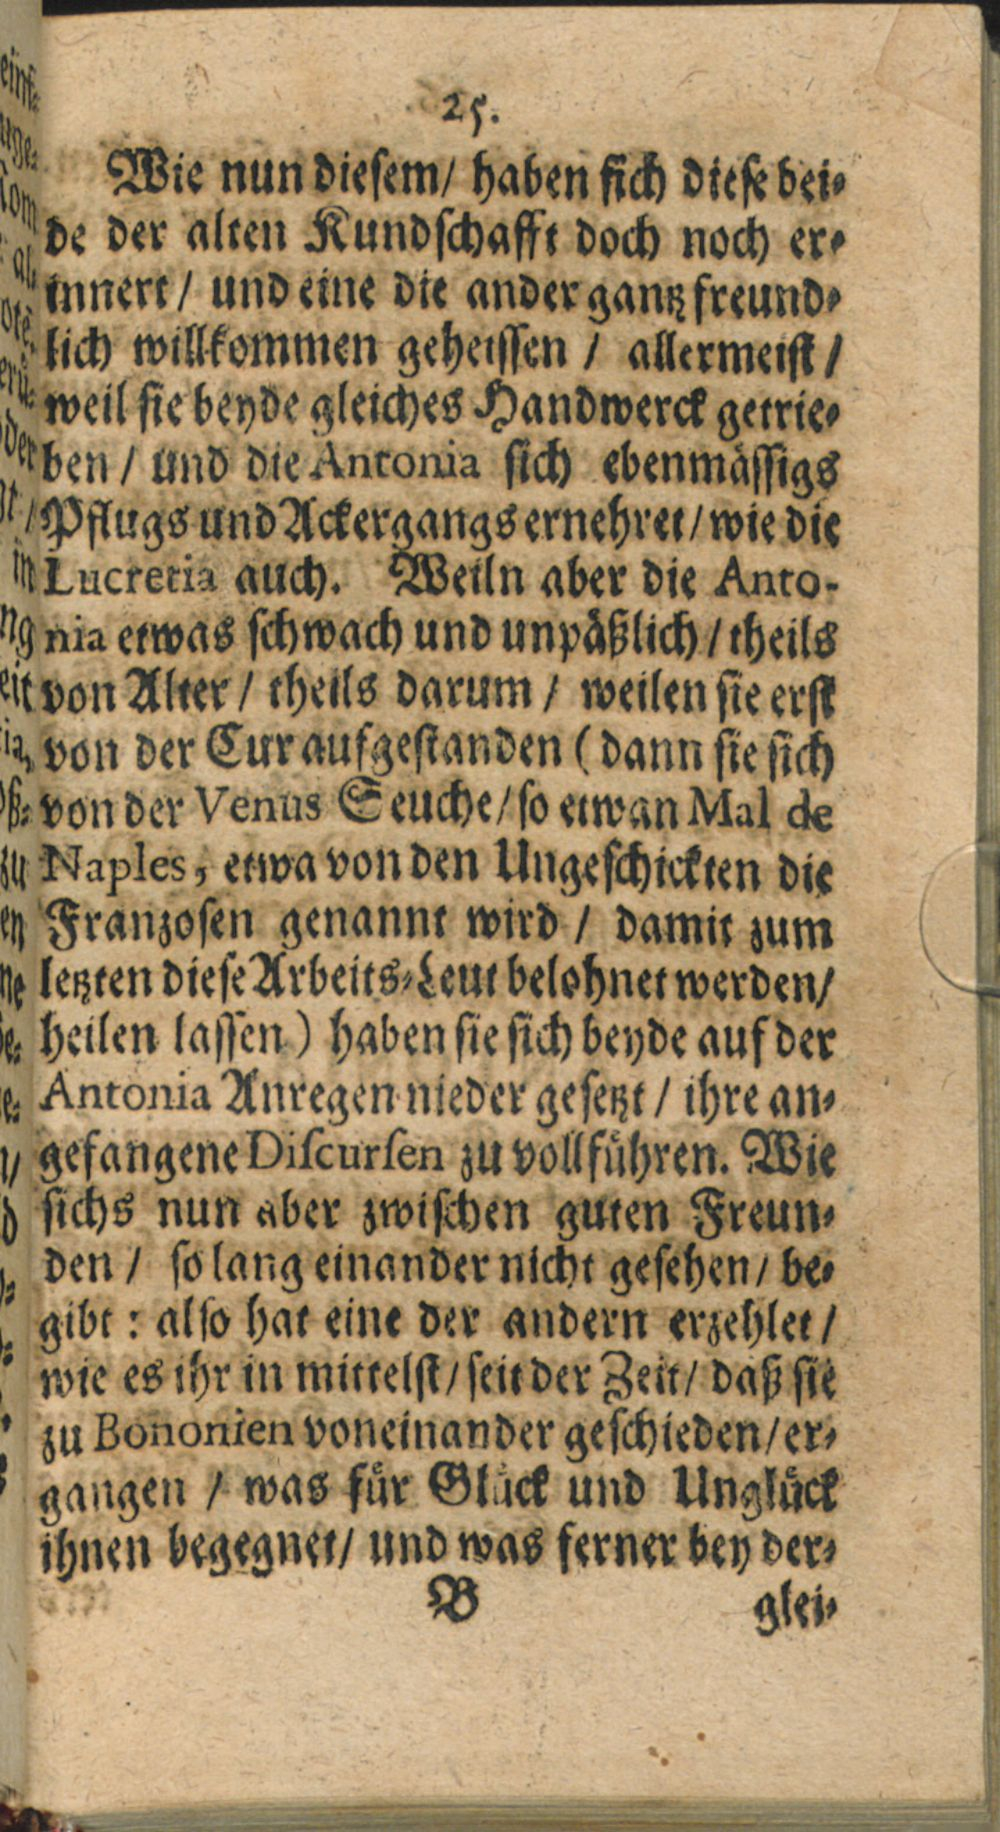 25.
Wie nun diesem/ haben sich diese bei-
de der alten Kundschafft doch noch er-
innert / und eine die ander gantz freund-
lich willkommen geheissen / allermeist /
weil sie beyde gleiches Handwerck getrie-
ben / und die Antonia sich ebenmässigs
Pflugs und Ackergangs ernehret / wie die
Lucretia auch. Weiln aber die Anto-
nia etwas schwach und unpäßlich / theils
von Alter / theils darum / weilen sie erst
von der Cur aufgestanden ( dann sie sich
von der Venus Seuche / so etwan Mal de
Naples, etwa von den Ungeschickten die
Franzosen genannt wird / damit zum
letzten diese Arbeits-Leut belohnet werden/
heilen lassen ) haben sie sich beyde auf der
Antonia Anregen nieder gesetzt / ihre an-
gefangene Discursen zu vollführen. Wie
sichs nun aber zwischen guten Freun-
den / so lang einander nicht gesehen / be-
gibt : also hat eine der andern erzehlet /
wie es ihr in mittelst / seit der Zeit / daß sie
zu Bononien voneinander geschieden / er-
gangen / was für Glück und Unglück
ihnen begegnet / und was ferner bey der-
B glei-